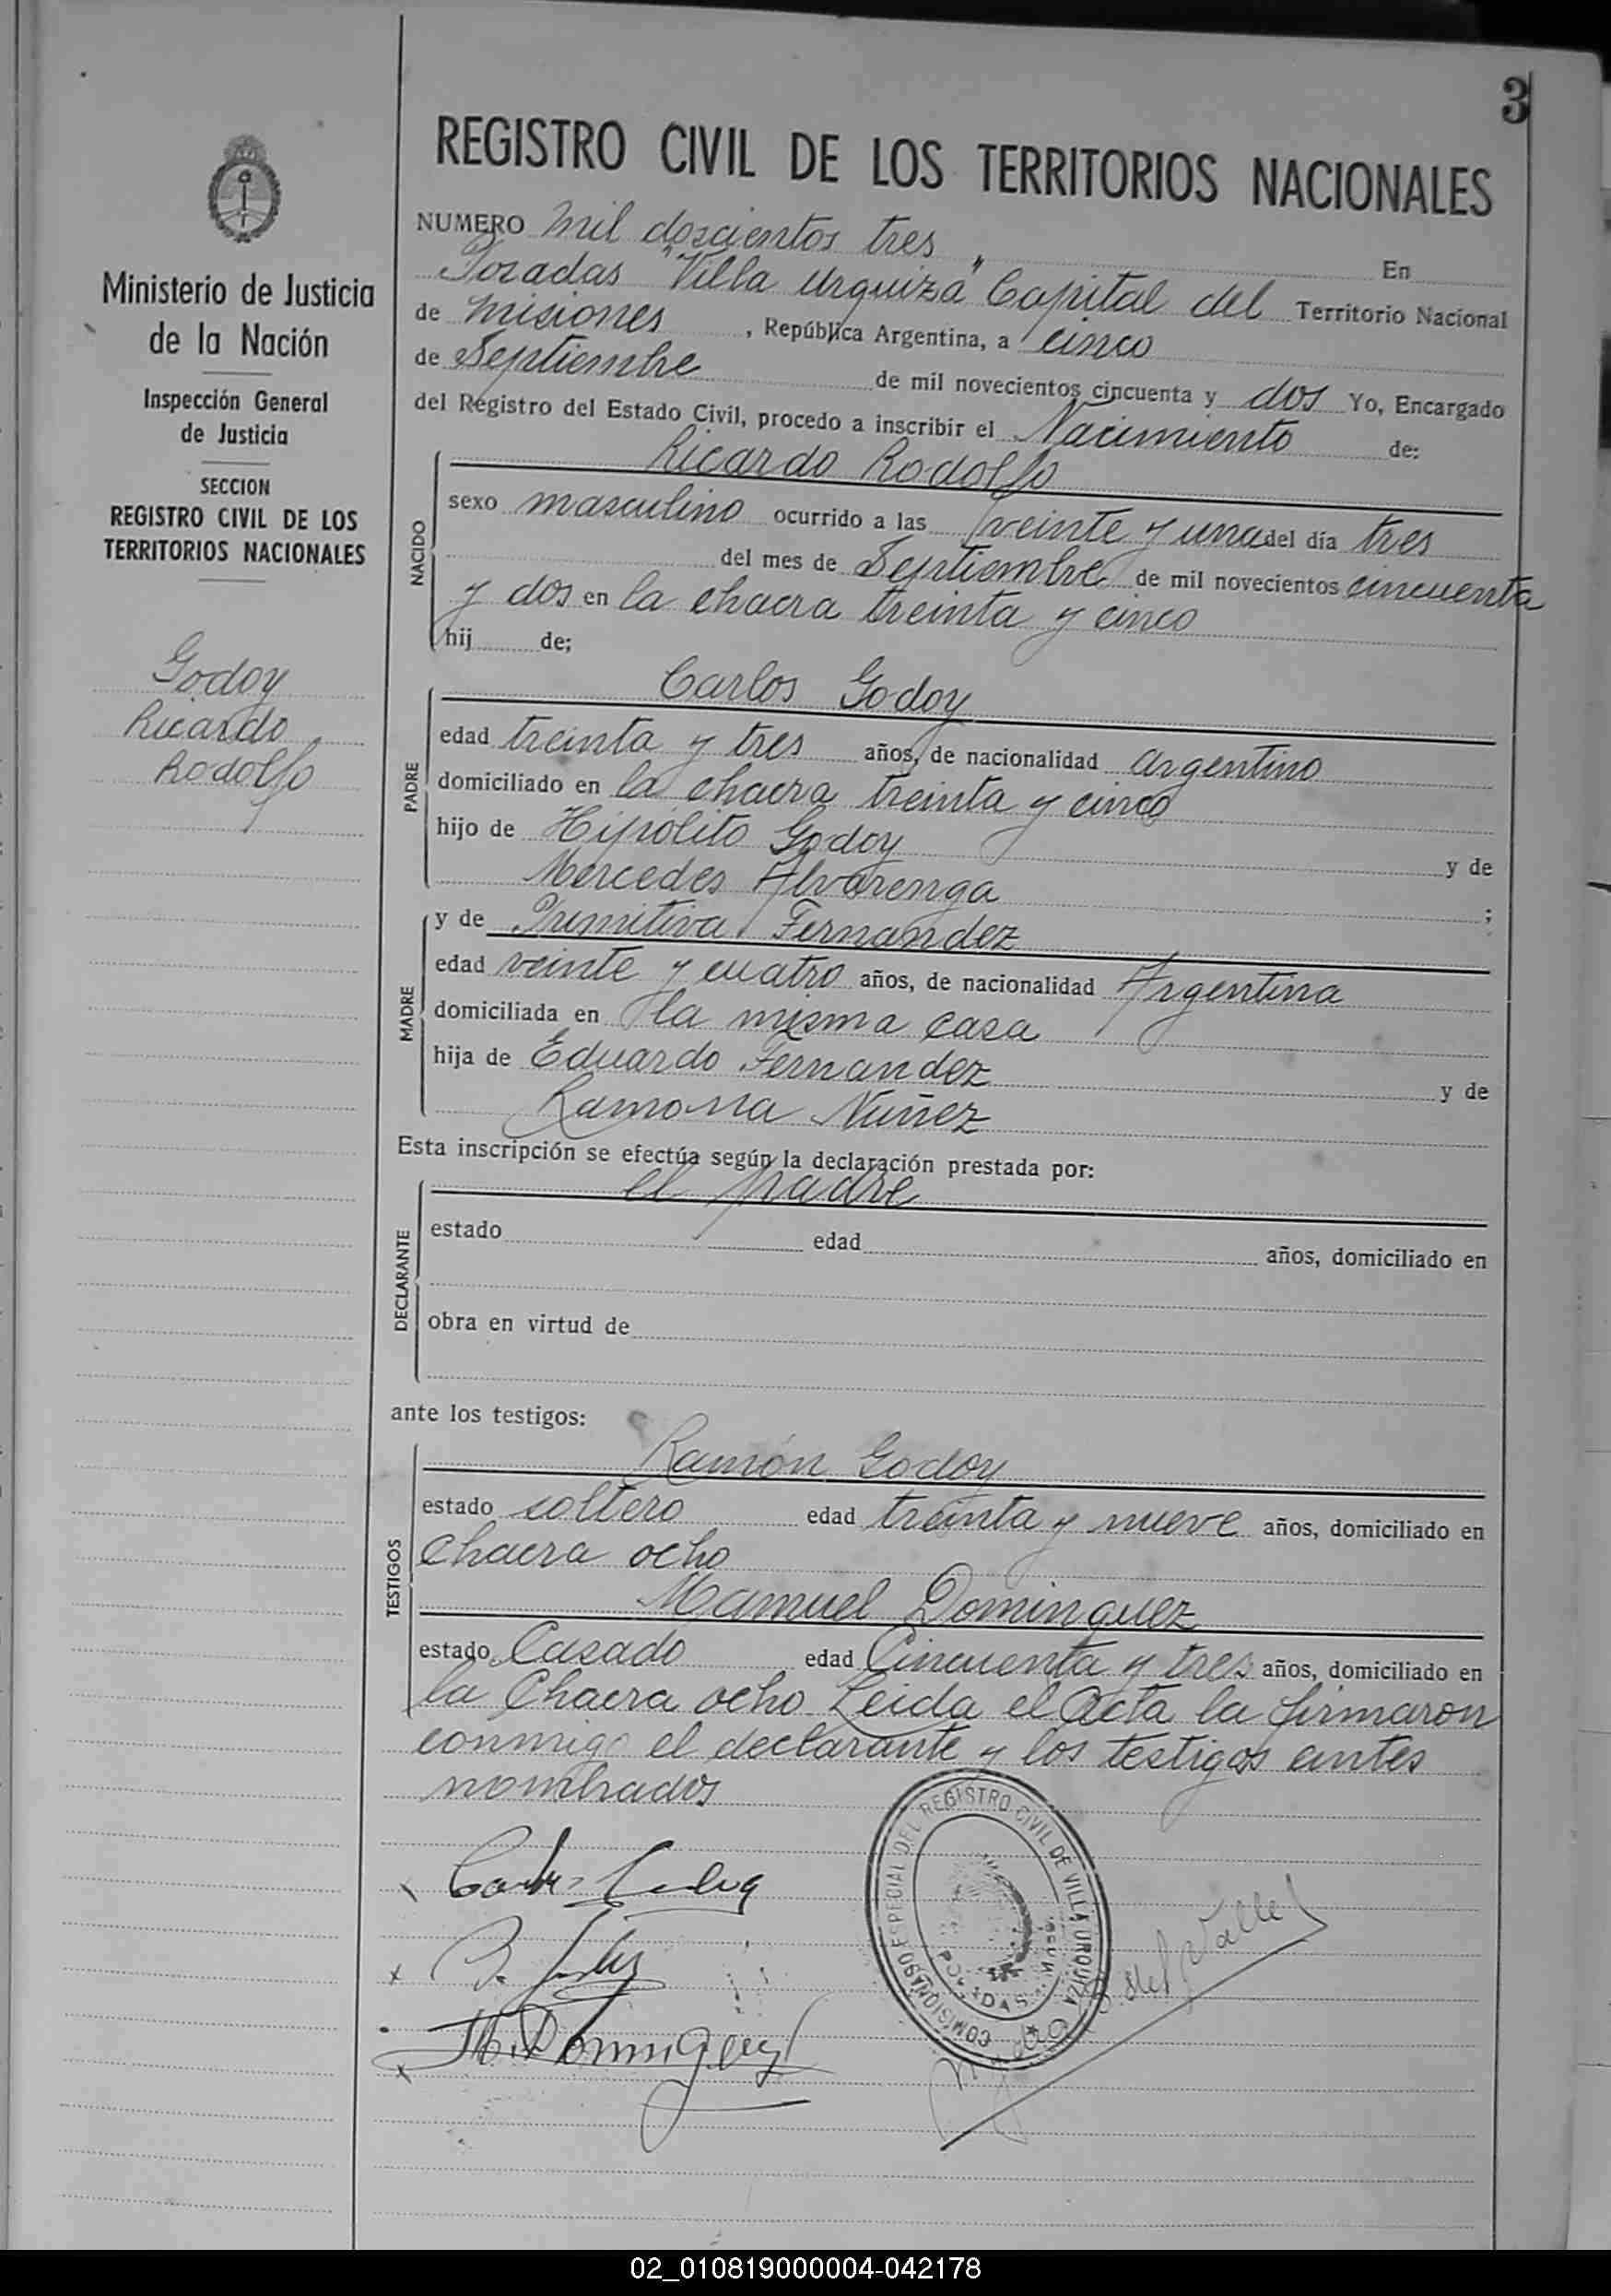 3
REGISTRO CIVIL DE LOS TERRITORIOS NACIONALES
Ministerio de Justicia
de la Nación
Inspección General
de Justicia
SECCION
REGISTRO CIVIL DE LOS
TERRITORIOS NACIONALES
Godoy
Ricardo
Rodolfo
NUMERO Mil doscientos tres En
Posadas "Villa Urquiza" Capital del Territorio Nacional
de Misiones, República Argentina, a cinco
de Septiembre de mil novecientos cincuenta y dos Yo, Encargado
del Registro del Estado Civil, procedo a inscribir el Nacimiento de:
NACIDO
Ricardo Rodolfo
sexo masculino ocurrido a las veinte y una del día tres
del mes de Septiembre de mil novecientos cincuenta
y dos en la chacra treinta y cinco
hij de;
PADRE
Carlos Godoy
edad treinta y tres años, de nacionalidad argentino
domiciliado en la chacra treinta y cinco
hijo de Hipólito Godoy y de
Mercedes Alvarenga ;
MADRE
y de Primitiva Fernandez
edad veinte y cuatro años, de nacionalidad Argentina
domiciliada en la misma casa
hija de Eduardo Fernandez y de
Ramona Nuñez
Esta inscripción se efectúa según la declaración prestada por:
DECLARANTE
el padre
estado edad años, domiciliado en
obra en virtud de
ante los testigos:
TESTIGOS
Ramón Godoy
estado soltero edad treinta y nueve años, domiciliado en
chacra ocho
Manuel Dominguez
estado Casado edad Cincuenta y tres años, domiciliado en
la Chacra ocho Leida el Acta la firmaron
conmigo el declarante y los testigos antes
nombrados
COMISIONADO ESPECIAL DEL REGISTRO CIVIL DE VILLA URQUIZA
POSADAS
del Valle
02_010819000004-042178